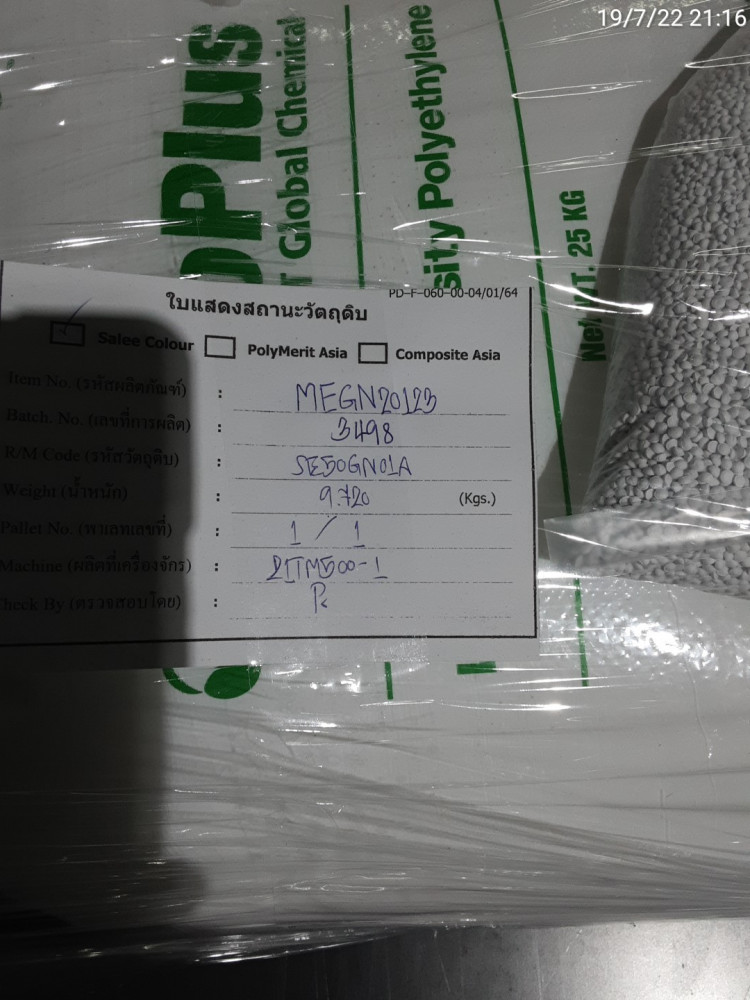 19/7/22 21:16
Plus
Global Chemical
sity Polyethylene
Net WT. 25 KG
PD-F-060-00-04/01/64
ใบแสดงสถานะวัตถุดิบ
Salee Colour PolyMerit Asia Composite Asia
Item No. (รหัสผลิตภัณฑ์) : MEGN20123
Batch. No. (เลขที่การผลิต) : 3498
R/M Code (รหัสวัตถุดิบ) : SE50GN01A
Weight (น้ำหนัก) : 9.720 (Kgs.)
Pallet No. (พาเลทเลขที่) : 1 / 1
Machine (ผลิตที่เครื่องจักร) : 2ITM500-1
Check By (ตรวจสอบโดย) :